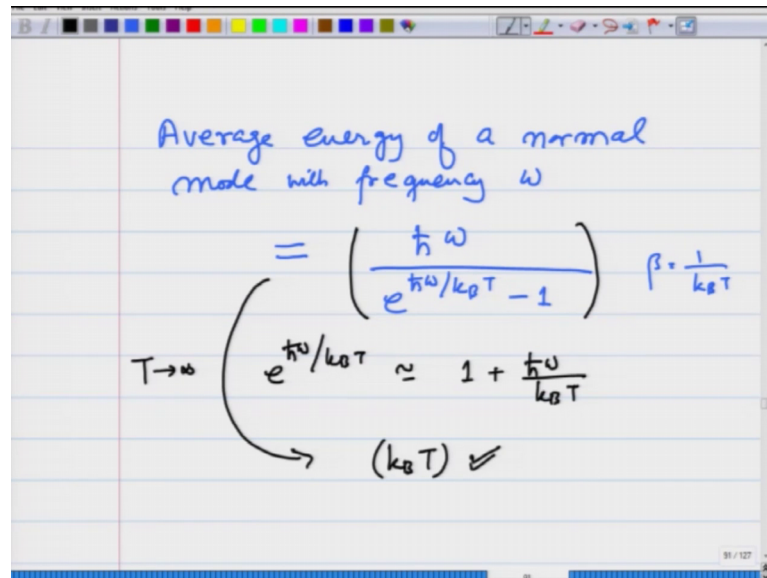 Average energy of a normal
mode with frequency ω
= ( ħω / (e^{ħω/k_B T} - 1) )   β = 1/(k_B T)
T→∞   e^{ħω/k_B T} ≃ 1 + ħω/(k_B T)
(k_B T) ✓
51 / 127